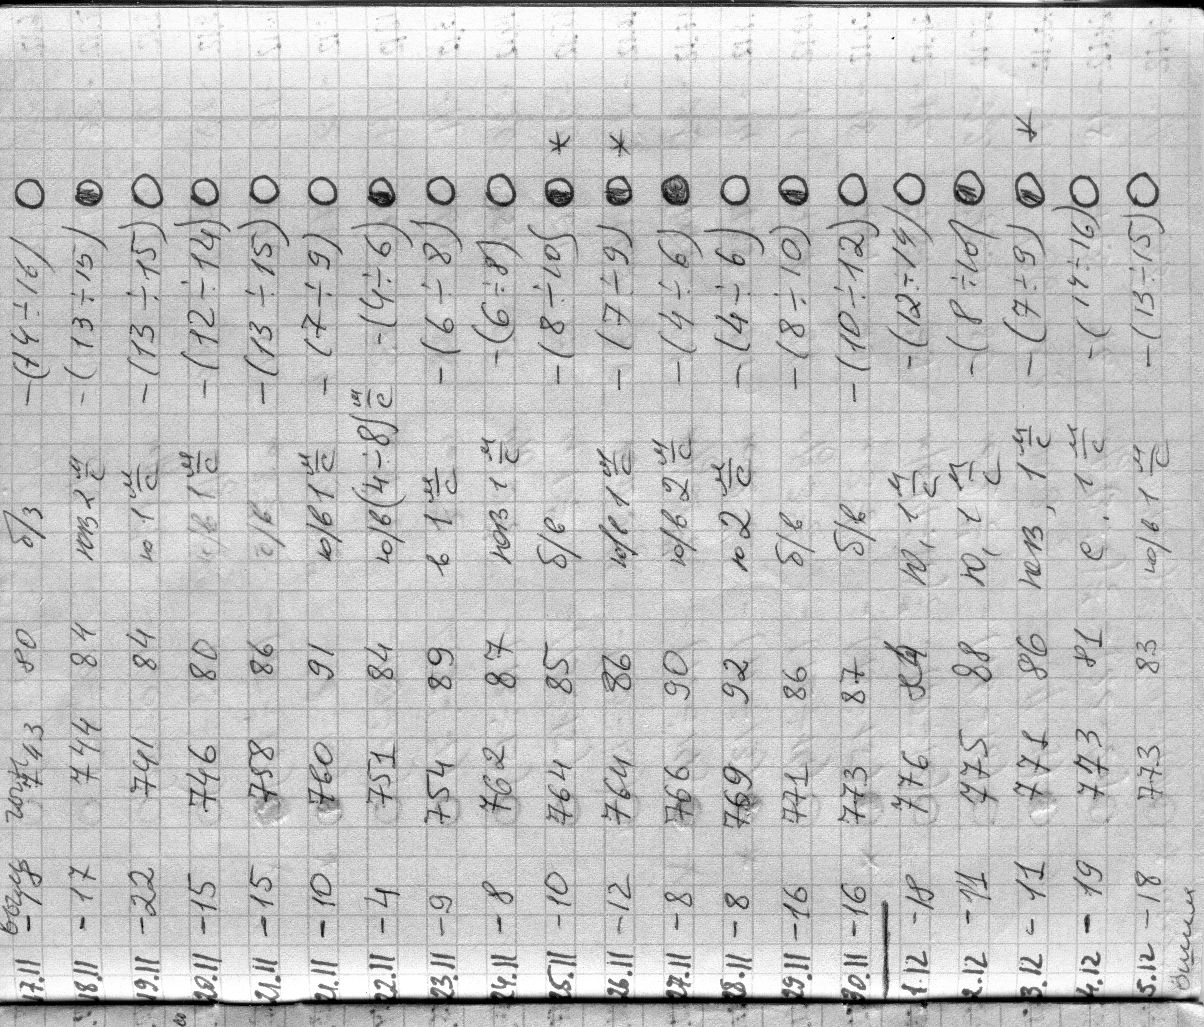 17.11 743 80 б/з -(14÷16)
18.11 -17 744 84 юзв 2 м/с -(13÷15)
19.11 -22 741 84 ю 1 м/с -(13÷15)
20.11 -15 746 80 ю/в 1 м/с -(12÷14)
21.11 -15 758 86 б/в -(13÷15)
21.11 -10 760 91 ю/в 1 м/с -(7÷9)
22.11 -4 751 84 ю/в (4÷8) м/с -(4÷6)
23.11 -9 754 89 в 1 м/с -(6÷8)
24.11 -8 762 87 юзв 1 м/с -(6÷8)
25.11 -10 764 85 б/в -(8÷10) *
26.11 -12 764 86 ю/в 1 м/с -(7÷9) *
27.11 -8 766 90 ю/в 2 м/с -(4÷6)
28.11 -8 769 92 ю 2 м/с -(4÷6)
29.11 -16 771 86 б/в -(8÷10)
30.11 -16 773 87 б/в -(10÷12)
1.12 -18 776 84 ю, 1 м/с -(12÷14)
2.12 -11 775 88 ю, 1 м/с -(8÷10)
3.12 -11 771 86 юзв, 1 м/с -(7÷9) *
4.12 -19 773 81 с. 1 м/с -(14÷16)
5.12 -18 773 83 ю/в 1 м/с -(13÷15)